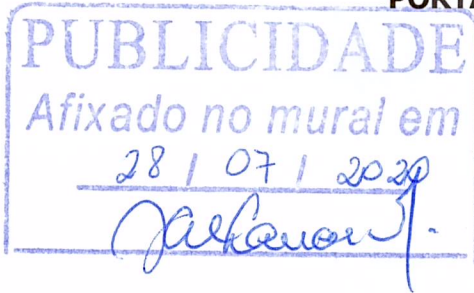 PORTA
PUBLICIDADE
Afixado no mural em
28 / 07 / 2020